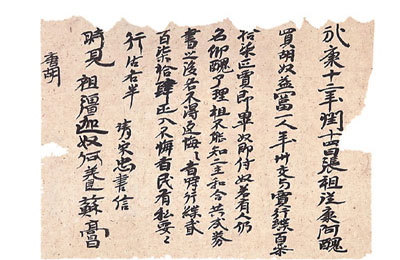 永康十二年潤十四日張祖從康阿醜
買胡奴益富一人年卅交与賈行緤百叁
拾柒疋賈即畢奴即付奴若有人仍
名仰醜了理祖不能知二主和合共成券
書之後各不得返悔悔者罸行緤貳
百柒拾肆疋入不悔者民有私要要
行沽各半
請宋忠書信
時見祖彊迦奴何養蘇高
唐胡